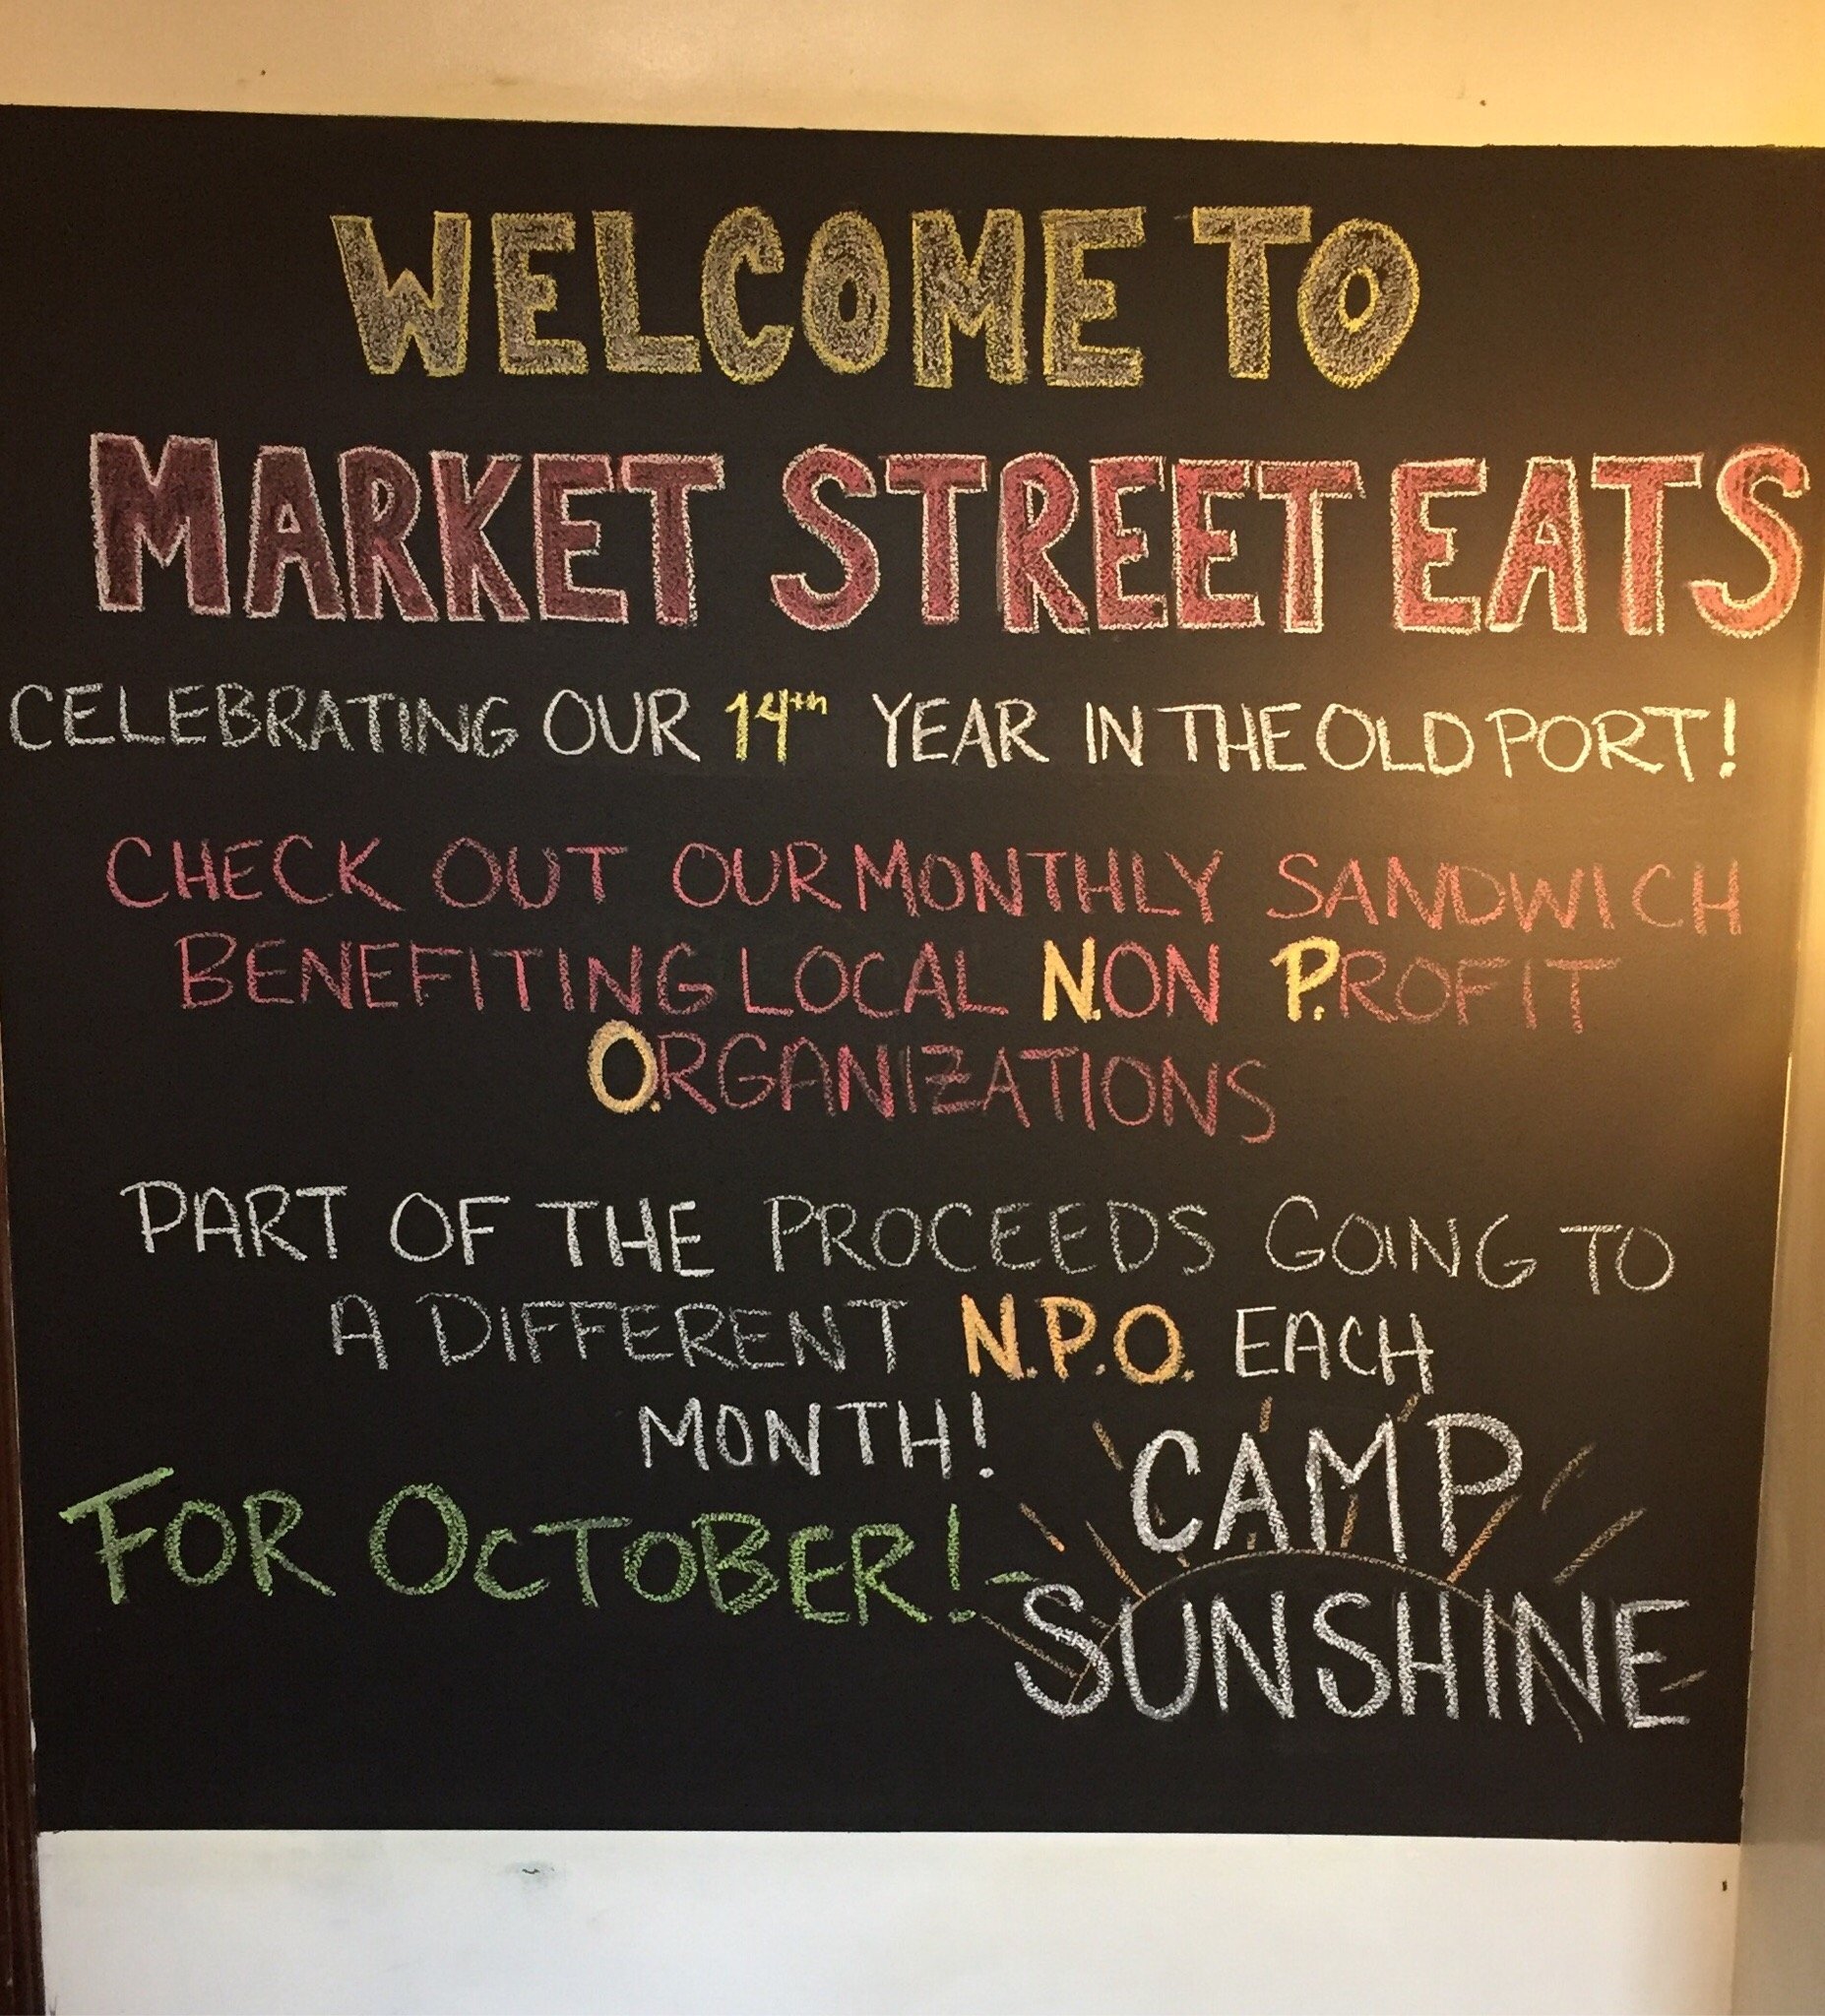 WELCOME TO
MARKET STREET EATS
CELEBRATING OUR 14th YEAR IN THE OLD PORT!
CHECK OUT OUR MONTHLY SANDWICH
BENEFITING LOCAL N.ON P.ROFIT
O.RGANIZATIONS
PART OF THE PROCEEDS GOING TO
A DIFFERENT N.P.O. EACH
MONTH!
FOR OCTOBER! -
CAMP
SUNSHINE